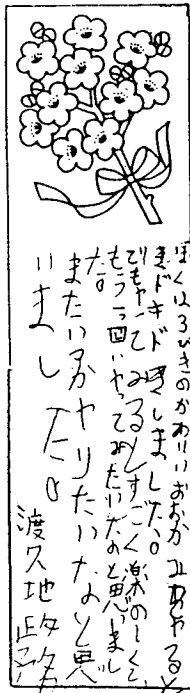 ぼくは３びきのかわりいおおかみをやると
きドキドキしました。
でもやってみるとすごく楽のしくて
もう一回いやってみたいなあと思いまし
た。
またいつかやりたいなあと思
いました。
渡久地